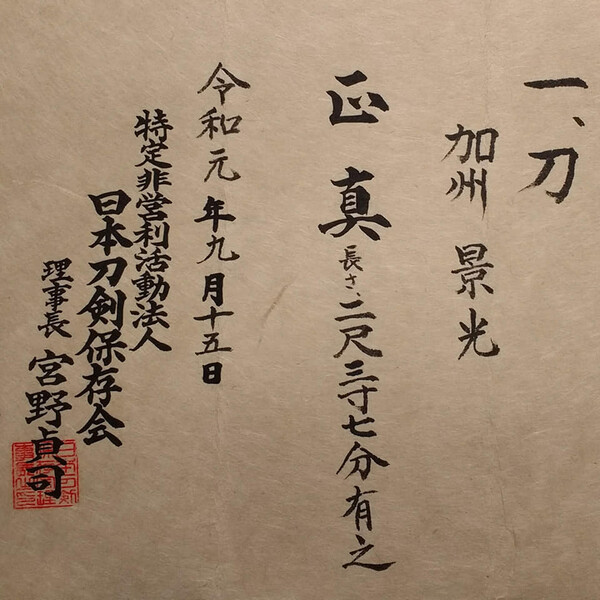 一、刀
加州 景光
正真 長さ、二尺三寸七分有之
令和元年九月十五日
特定非営利活動法人
日本刀剣保存会
理事長 宮野貞司